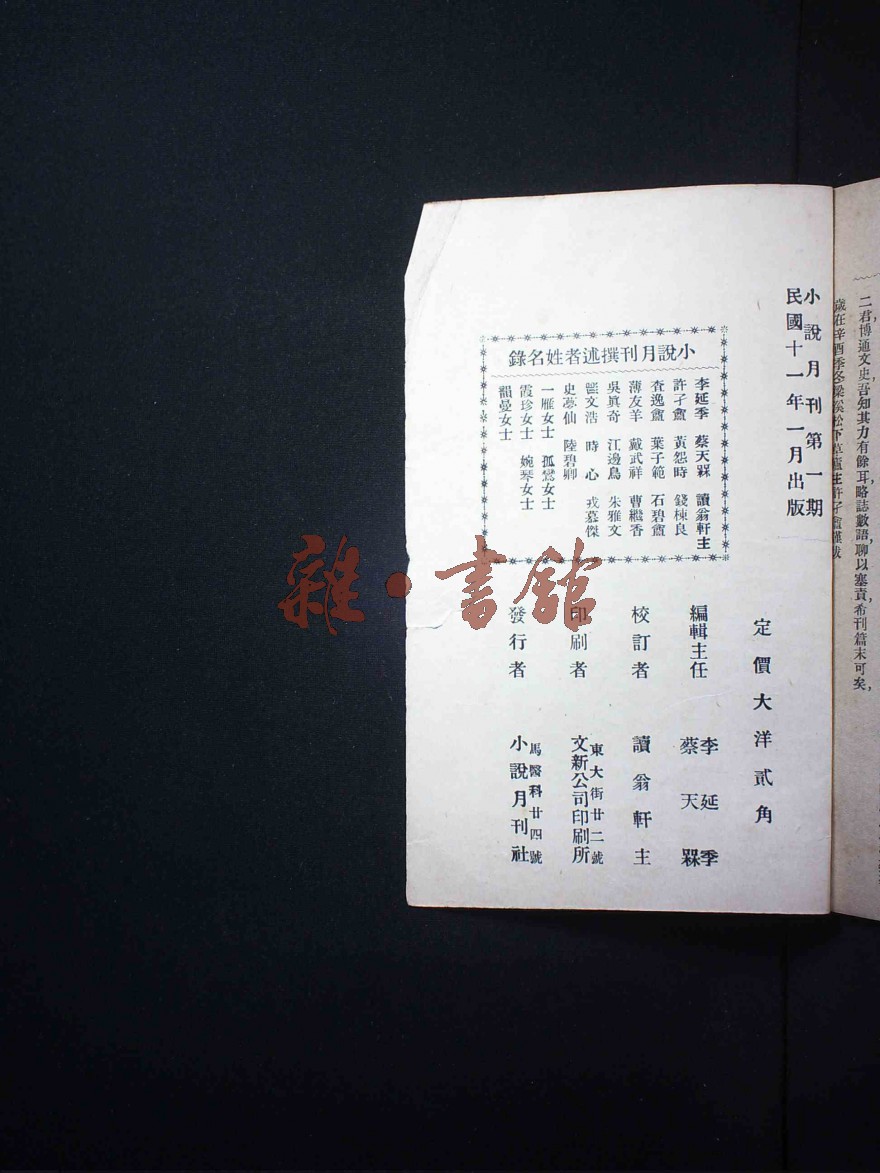 二君博通文史，吾知其力有餘耳，略誌數語，聊以塞責，希刊篇末可矣，
歲在辛酉季冬梁溪松下草廬主許孑盦謹跋
小說月刊第一期
民國十一年一月出版
小說月刊撰述者姓名錄
李延季 蔡天槑 讀翁軒主
許孑盦 黃怨時 錢棟良
查逸盦 葉子範 石碧盦
薄友羊 戴武祥 曹繼香
吳眞奇 江邊鳥 朱雅文
熊文浩 時心 戎慕傑
史夢仙 陸碧卿
一雁女士 孤鴛女士
霞珍女士 婉琴女士
韻曼女士
定價大洋貳角
編輯主任 李延季
蔡天槑
校訂者 讀翁軒主
印刷者 東大街廿二號
文新公司印刷所
發行者 馬醫科廿四號
小說月刊社
雜·書館